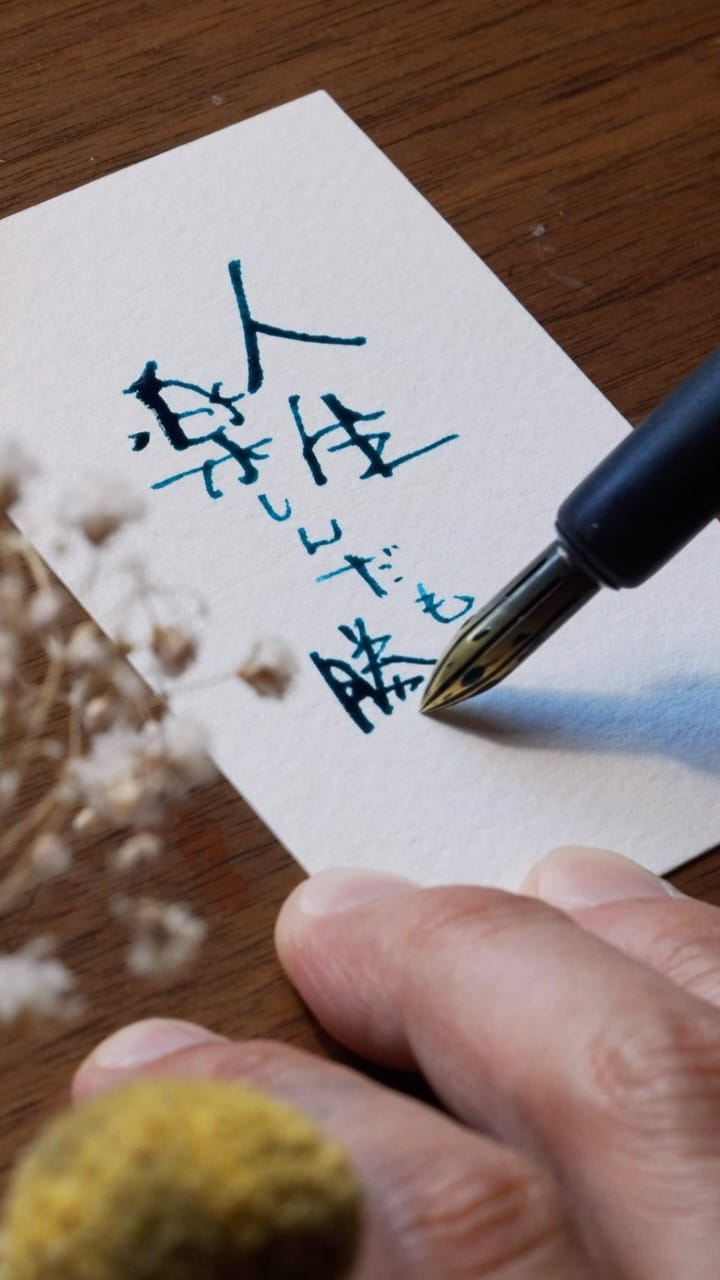 人生
楽しんだも
勝